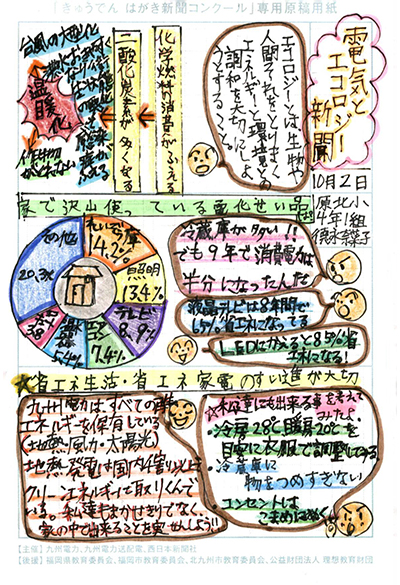 「きゅうでん はがき新聞コンクール」専用原稿用紙
電気と
エコロジー
新聞
10月2日
原北小
4年1組
エコロジーとは生物や
人間それをとりまくよ
エネルギーと環境との
調和を大切にしよ
うとすること。
化学燃料消費がふえる
二酸化炭素が多くなる
温暖化
台風の大型化
作物が
とれない
家で沢山使っている電化せい品は
れいぞう庫
14.2%
照明
13.4%
テレビ
8.9%
エアコン
7.4%
5.4%
その他
冷蔵庫が多い!!
でも9年で消費電力は
半分になったんだ
液晶テレビは8年間で
省エネになってる
LEDにかえると85%省
エネになる!
☆省エネ生活・省エネ家電のすい進が大切
九州電力は、すべての種
エネルギーを保有している
(地熱・風力・太陽光)
地熱発電は国内4割以上で
クリーンエネルギーに取りくんで
いる。私達もまかせきりでなく、
家の中で出来ることを実せんしよう!!
☆私達にも出来る事を考えて
みたよ。
・冷房28℃暖房20℃を
目安に衣服で調整してる
・冷蔵庫に
物をつめすぎない
・コンセントは
こまめにぬく
【主催】九州電力、九州電力送配電、西日本新聞社
【後援】福岡県教育委員会、福岡市教育委員会、北九州市教育委員会、公益財団法人 理想教育財団